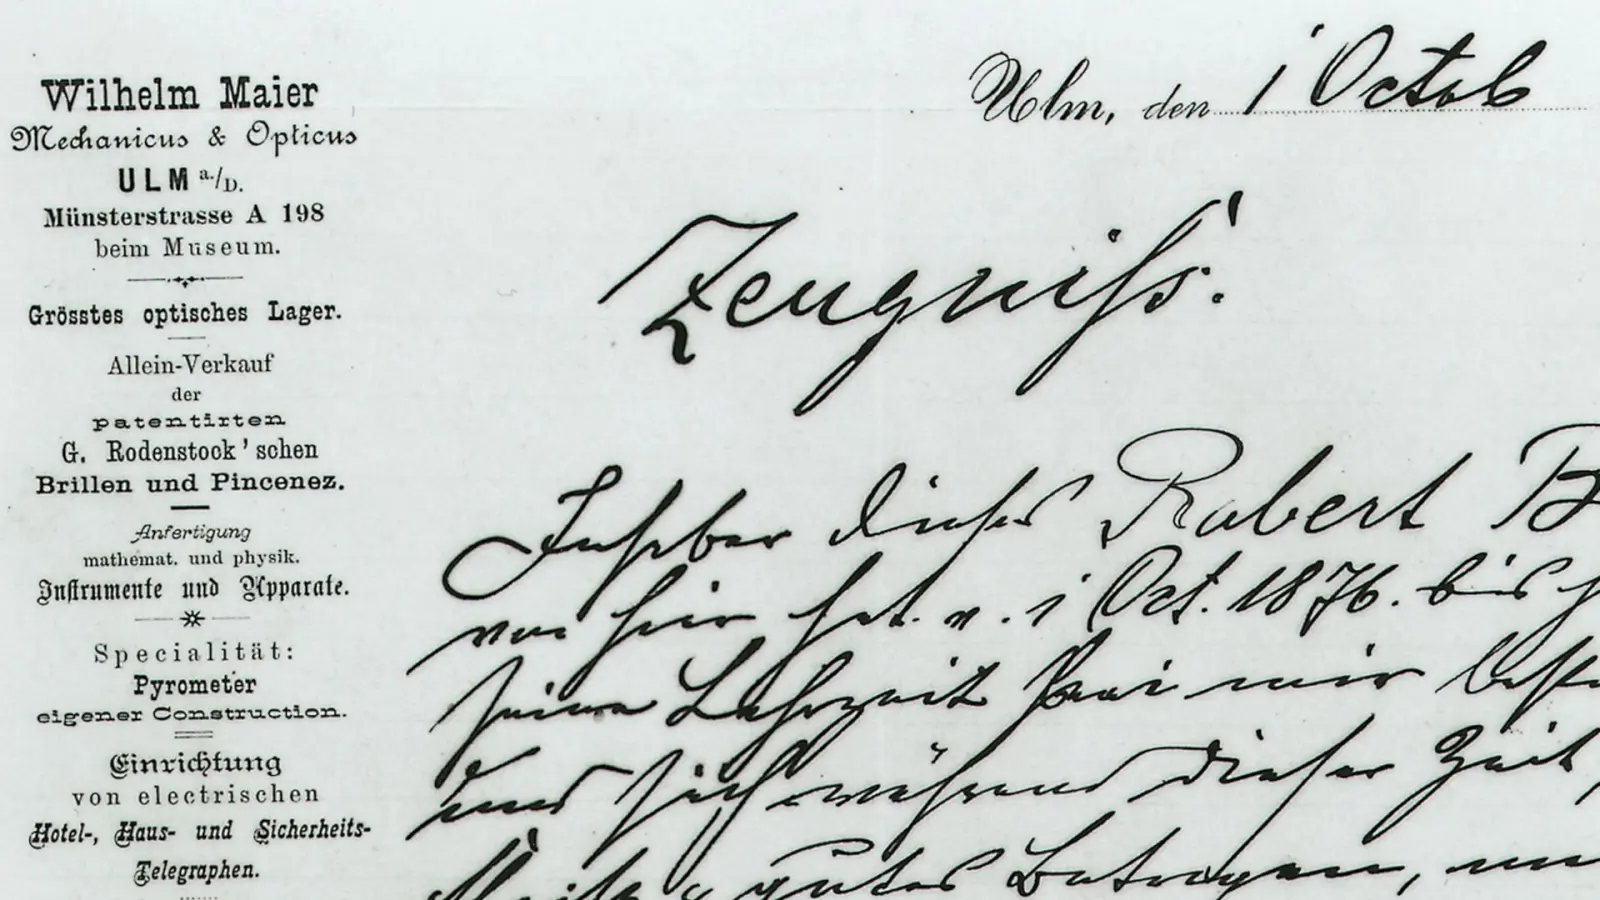 Wilhelm Maier
Mechanicus & Opticus
ULM a./D.
Münsterstrasse A 198
beim Museum.
Grösstes optisches Lager.
Allein-Verkauf
der
patentirten
G. Rodenstock'schen
Brillen und Pincenez.
Anfertigung
mathemat. und physik.
Instrumente und Apparate.
Specialität:
Pyrometer
eigener Construction.
Einrichtung
von electrischen
Hotel-, Haus- und Sicherheits-
Telegraphen.
Ulm, den 1 Octob
Zeugniss:
Inhaber dieses Robert B
von hier hat v. 1 Oct. 1876. bis
seine Lehrzeit bei mir
und sich während dieser Zeit
gutes Betragen,